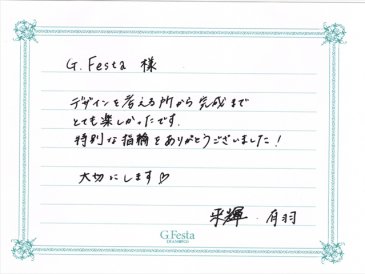 G.Festa 様
デザインを考える所から完成まで
とても楽しかったです.
特別な指輪をありがとうございました!
大切にします♡
来輝・有羽
G.Festa